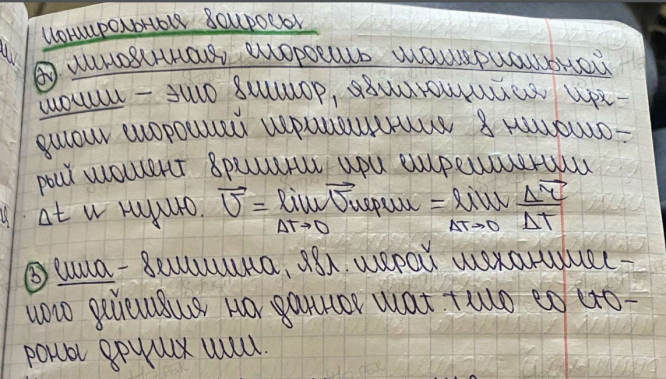 контрольные вопросы
2) мгновенная скорость материальной
точки – это вектор, являющийся пре-
делом скоростей перемещения в некото-
рый момент времени при стремлении
Δt к нулю. V⃗ = lim V⃗перем = lim Δr⃗/ΔT
ΔT→0 ΔT→0
3) сила – величина, явл. мерой механичес-
кого действия на данное мат. тело со сто-
роны других тел.